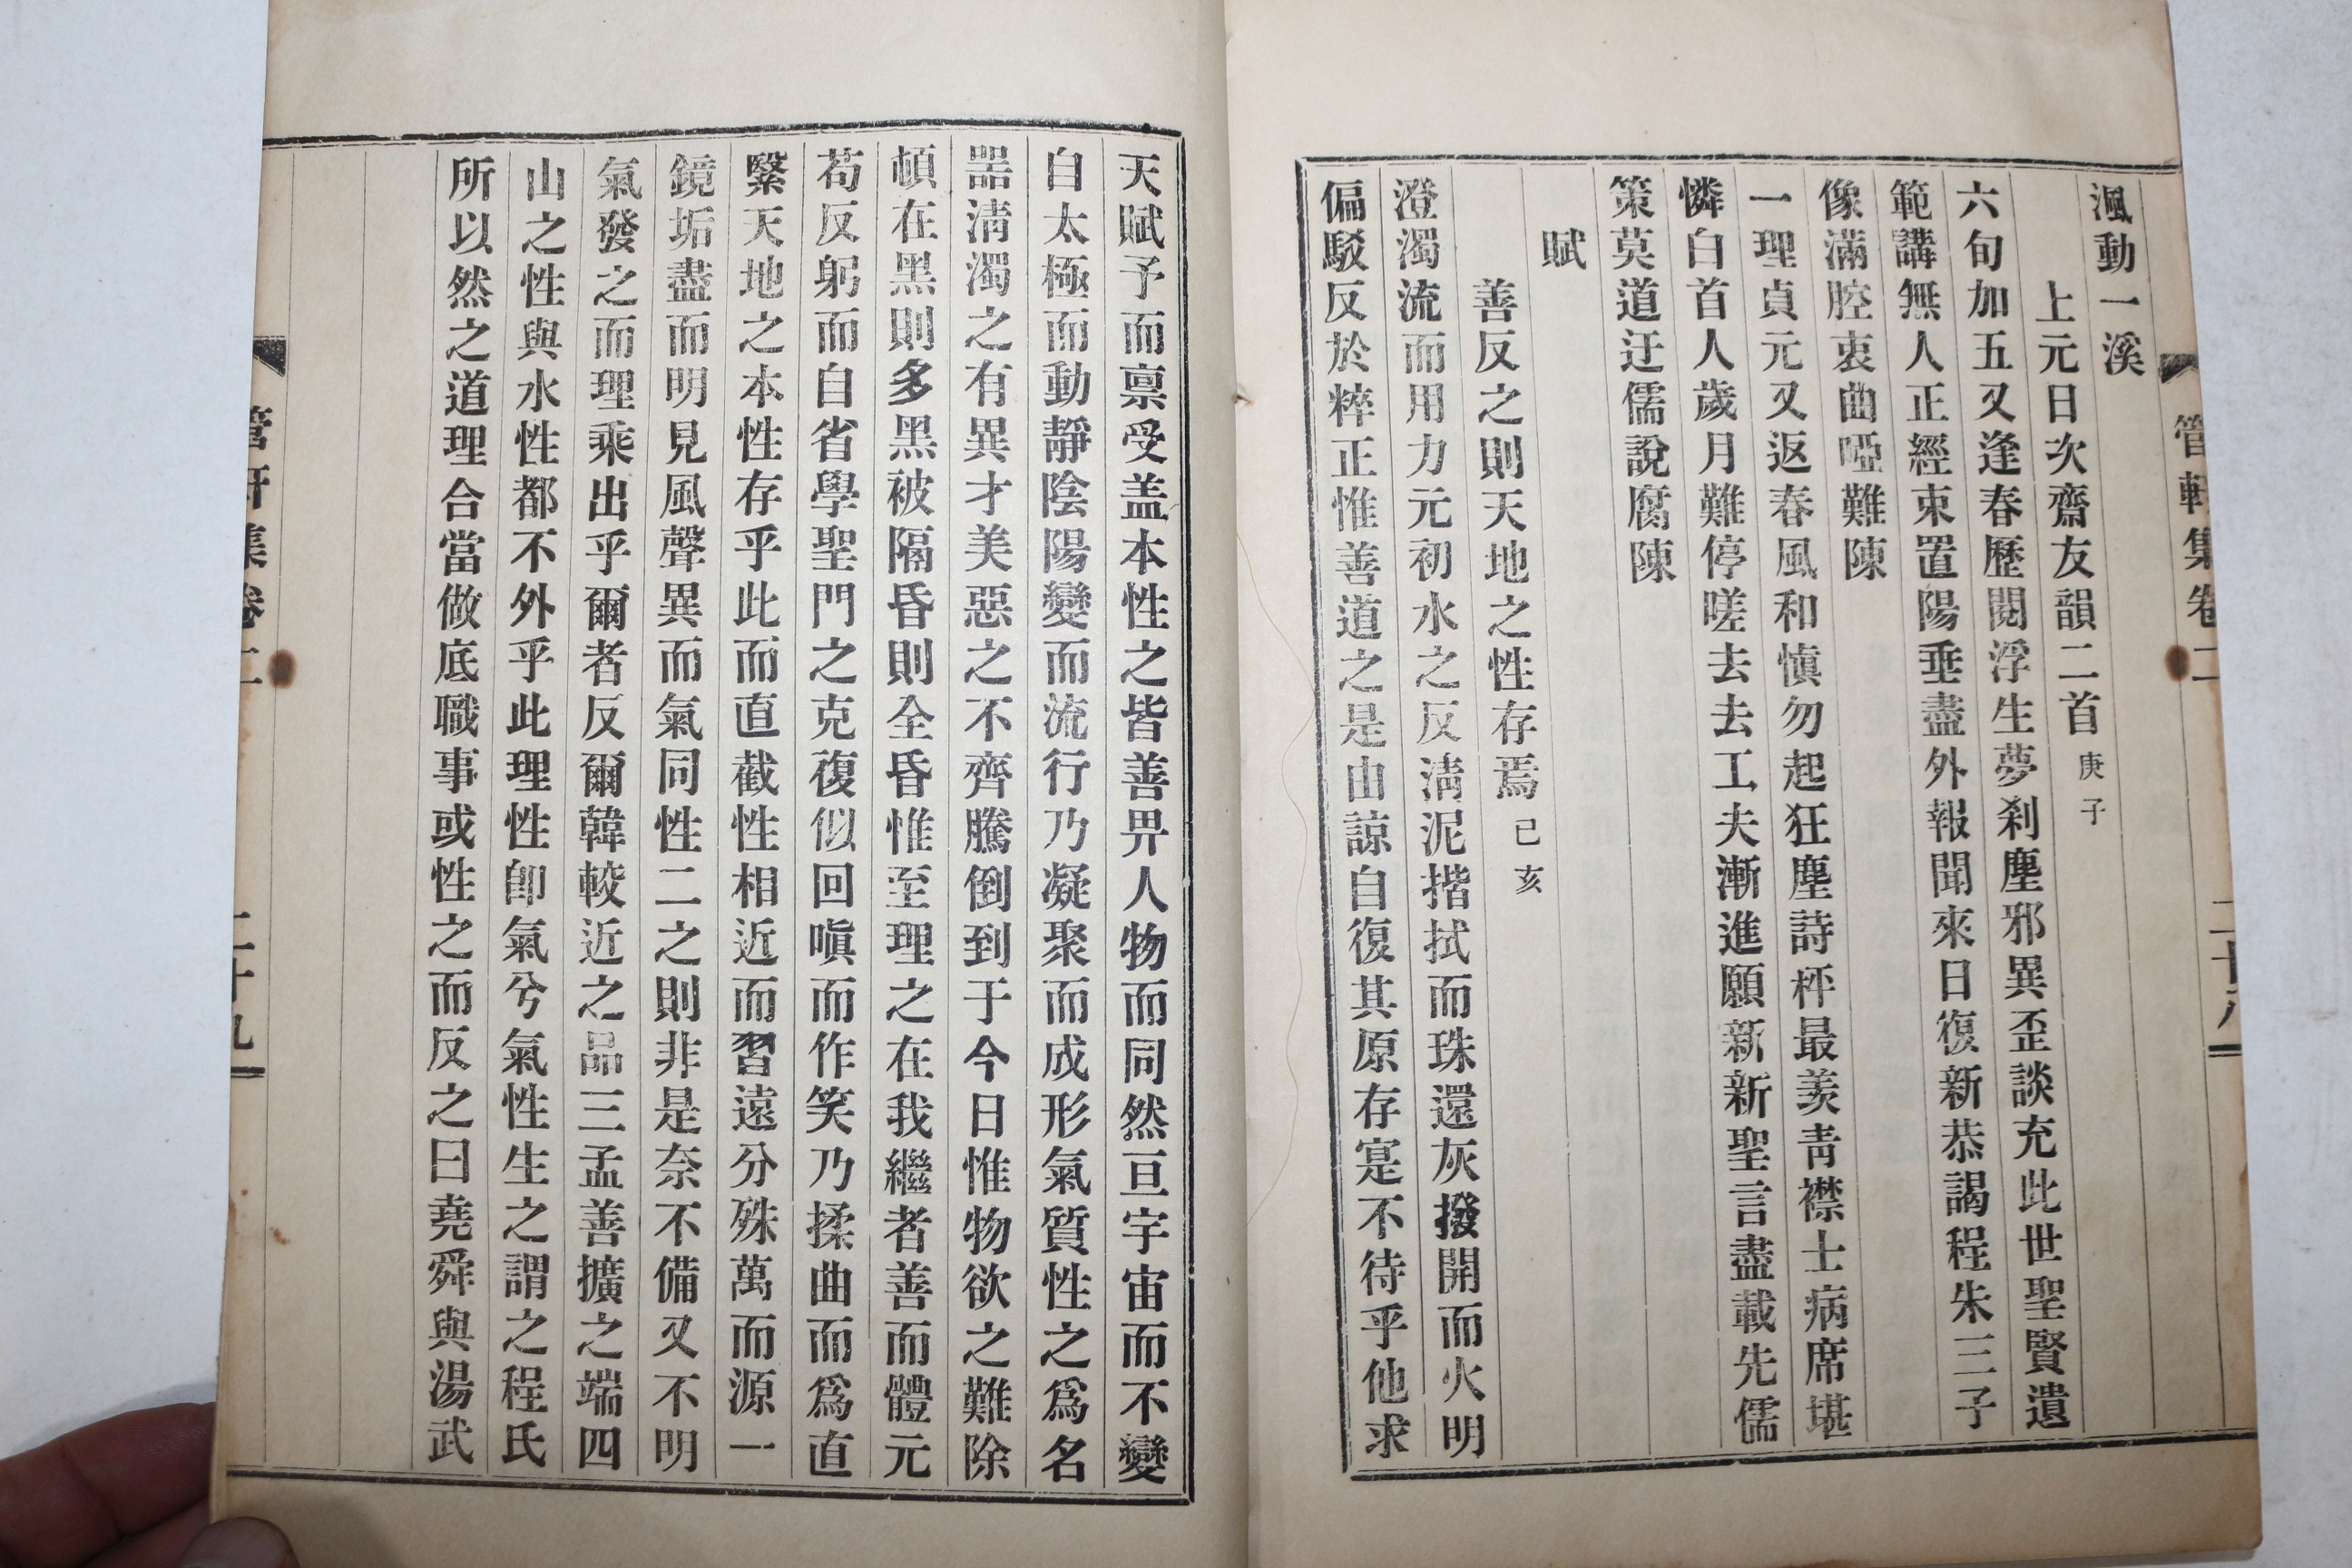 管軒集卷二
渢動一溪
上元日次齋友韻二首庚子
六旬加五又逢春歷閱浮生夢刹塵邪異歪談充此世聖賢遺
範講無人正經束置陽垂盡外報聞來日復新恭謁程朱三子
像滿腔衷曲啞難陳
一理貞元又返春風和愼勿起狂塵詩枰最羨靑襟士病席堪
憐白首人歲月難停嗟去去工夫漸進願新新聖言盡載先儒
策莫道迂儒說腐陳
賦
善反之則天地之性存焉己亥
澄濁流而用力元初水之反淸泥揩拭而珠還灰撥開而火明
偏駁反於粹正惟善道之是由諒自復其原存寔不待乎他求
天賦予而禀受盖本性之皆善畀人物而同然亘宇宙而不變
自太極而動靜陰陽變而流行乃凝聚而成形氣質性之爲名
噐淸濁之有異才美惡之不齊騰倒到于今日惟物欲之難除
頓在黑則多黑被隔昏則全昏惟至理之在我繼者善而體元
苟反躬而自省學聖門之克復似回嗔而作笑乃揉曲而爲直
緊天地之本性存乎此而直截性相近而習遠分殊萬而源一
鏡垢盡而明見風聲異而氣同性二之則非是奈不備又不明
氣發之而理乘出乎爾者反爾韓較近之品三孟善擴之端四
山之性與水性都不外乎此理性卽氣兮氣性生之謂之程氏
所以然之道理合當做底職事或性之而反之曰堯舜與湯武
管軒集卷二
二十九